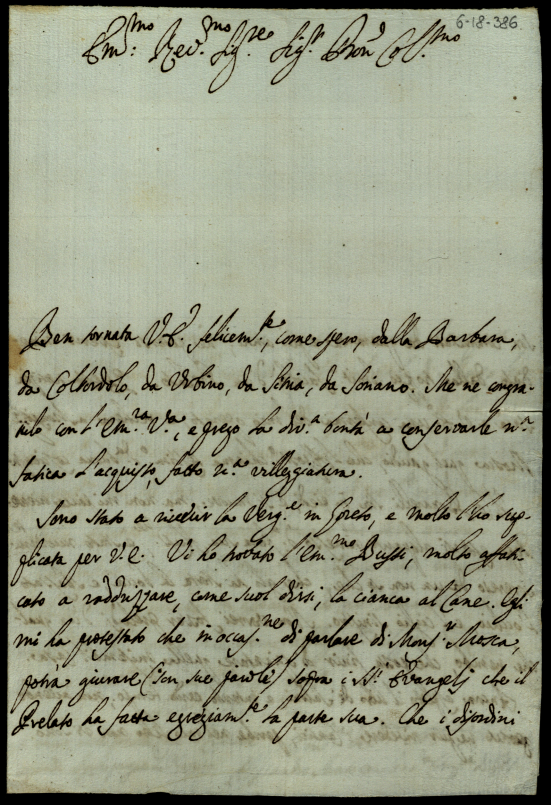 6-18-386
Em:mo Rev.mo Sig.re Sig.r Pron Col.mo
Ben tornata V.E. felicem.te, come spero, dalla Barbara,
da Colbordolo, da Urbino, da da Soriano. Me ne congra-
tulo con l'Em.za V.a, e prego la div.a bontà a conservarle n.a
fatica l'acquisto, fatto villeggiatura.
Sono stato a riverir la Verg.e in Loreto, e molto l'ho sup-
plicata per V.E. Vi ho trovato l'Em.mo Bussi, molto affati-
cato a raddrizzare, come suol dirsi, la cianca al Cane. Egli
mi ha protestato che in occas.ne di parlare di Mons.r Mosca,
potrà giurare (son sue parole) sopra i SS.i Evangelj che il
Prelato ha fatta egregiam.te la parte sua. Che i disordini